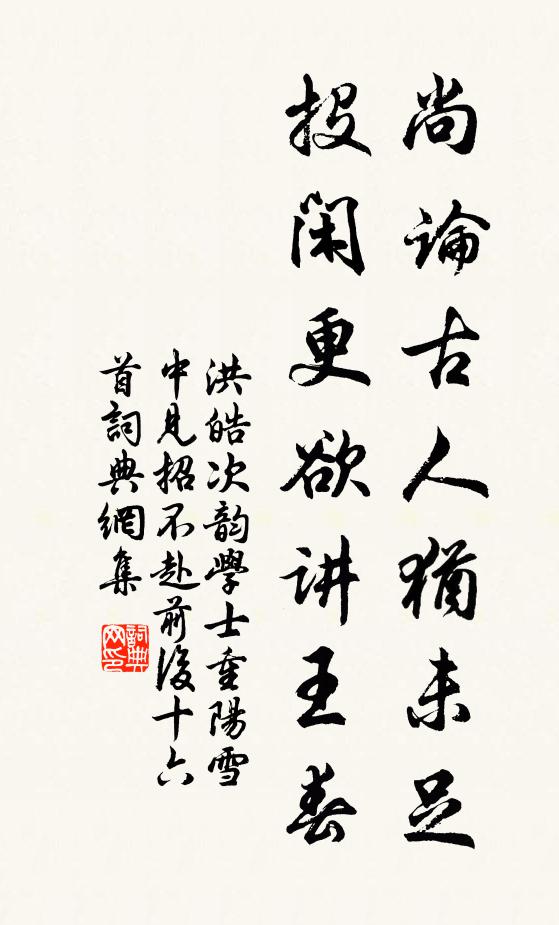 尚論古人猶未足
投閑更欲讲王春
洪皓次韵學士重陽雪
中見招不赴前後十六
首詞典網集
詞典
网印